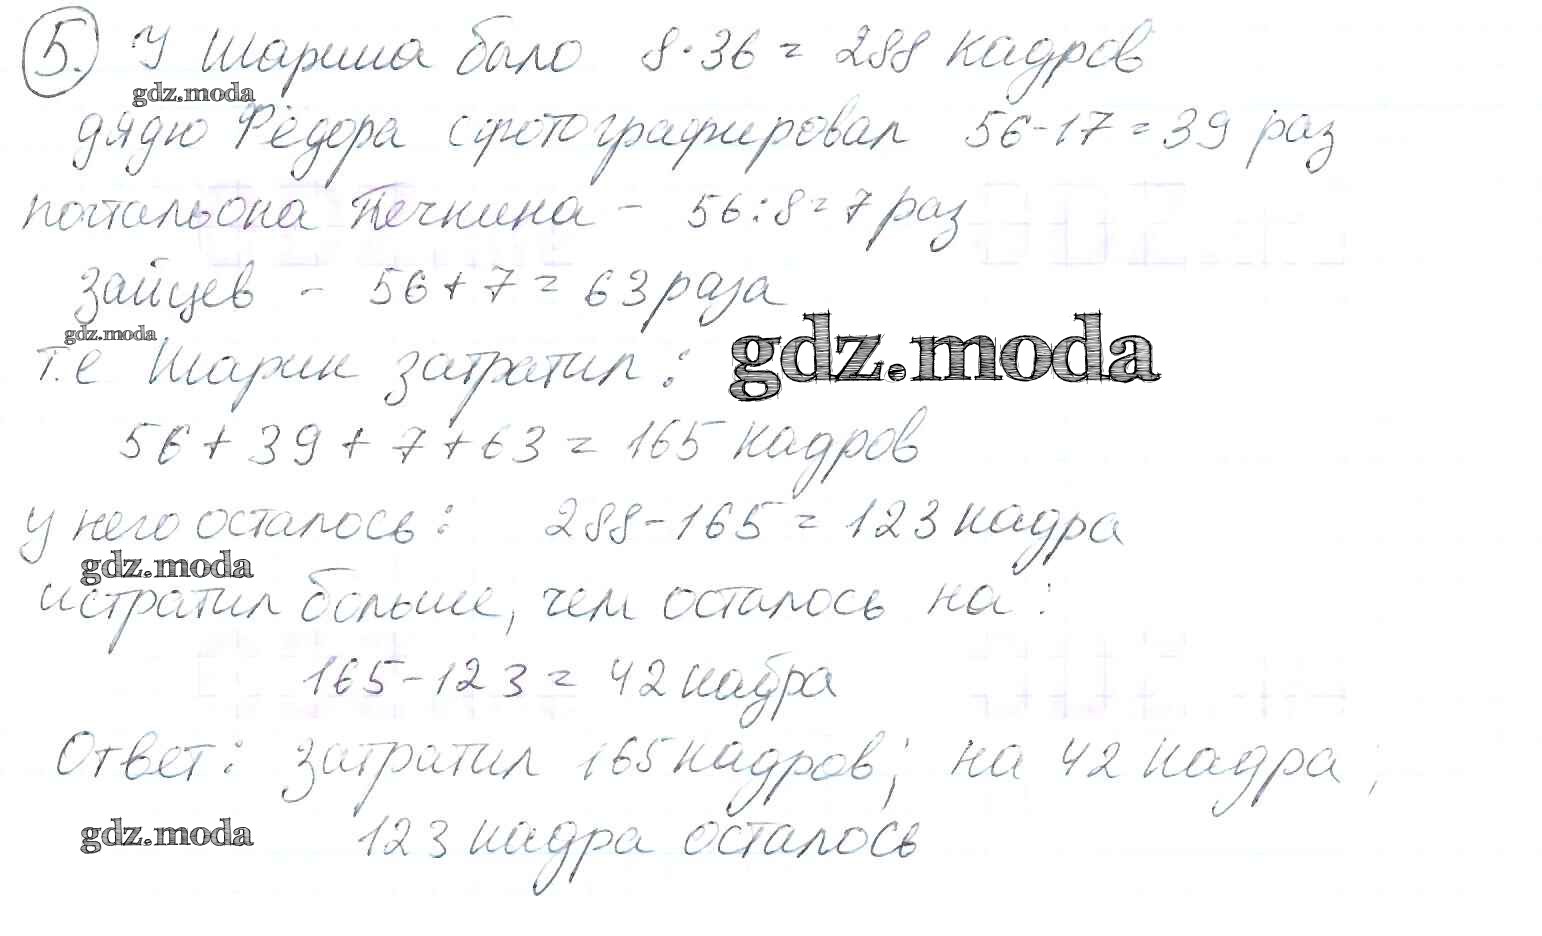 5. У Шарика было 8·36 = 288 кадров
gdz.moda
дядю Фёдора сфотографировал 56-17=39 раз
почтальона Печкина - 56:8=7 раз
зайцев - 56+7=63 раза
gdz.moda
т.е Шарик затратил:
gdz.moda
56+39+7+63=165 кадров
у него осталось: 288-165=123 кадра
gdz.moda
истратил больше, чем осталось на:
165-123=42 кадра
Ответ: затратил 165 кадров; на 42 кадра;
gdz.moda
123 кадра осталось